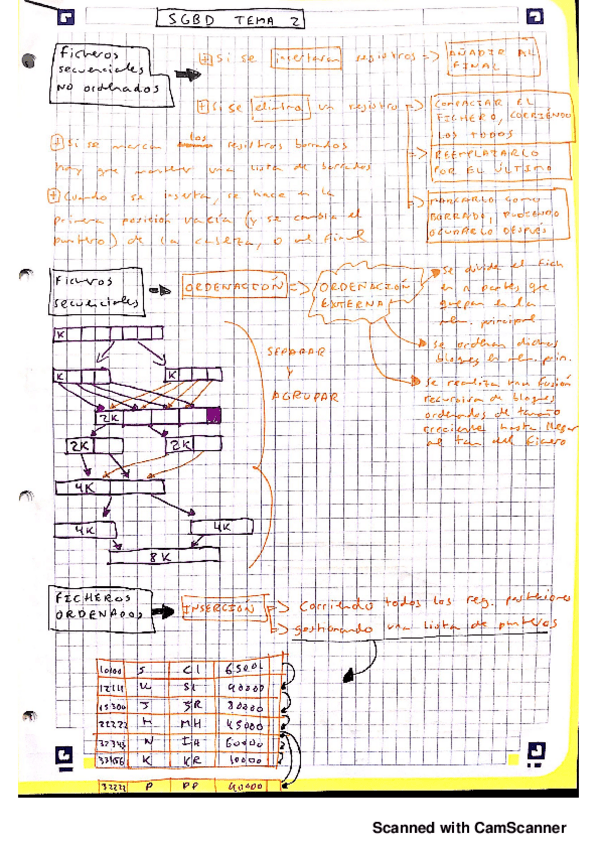 SGBD TEMA 2
Ficheros
secuenciales
NO ordenados
Si se insertaran registros => AÑADIR AL
FINAL
Si se elimina un registro
COMPACTAR EL
FICHERO, CORRIENDO
LOS TODOS
REEMPLAZARLO
POR EL ÚLTIMO
MARCARLO COMO
BORRADO, PUDIENDO
OCUPARLO DESPUÉS
Si se marcan los registros borrados
hay que mantener una lista de borrados
Cuando se inserta, se hace en la
primera posición vacía (y se cambia el
puntero) de la cabeza, o al final
Ficheros
secuenciales
ORDENACIÓN => ORDENACIÓN
EXTERNA
Se divide el fich
en n partes que
quepan en la
mem. principal
Se ordenan dichos
bloques en mem. prin.
Se realiza una fusión
recursiva de bloques
ordenados de tamaño
creciente hasta llegar
al tam del fichero
K
K
K
SEPARAR
Y
AGRUPAR
2K
2K
2K
4K
4K
4K
8K
FICHEROS
ORDENADOS
INSERCIÓN
Corriendo todos los reg. posteriores
gestionando una lista de punteros
10100 S CI 65000
12121 U SI 90000
15300 J JR 80000
22222 M MH 45000
32345 N IH 60000
33456 K KR 10000
32222 P PP 40000
Scanned with CamScanner